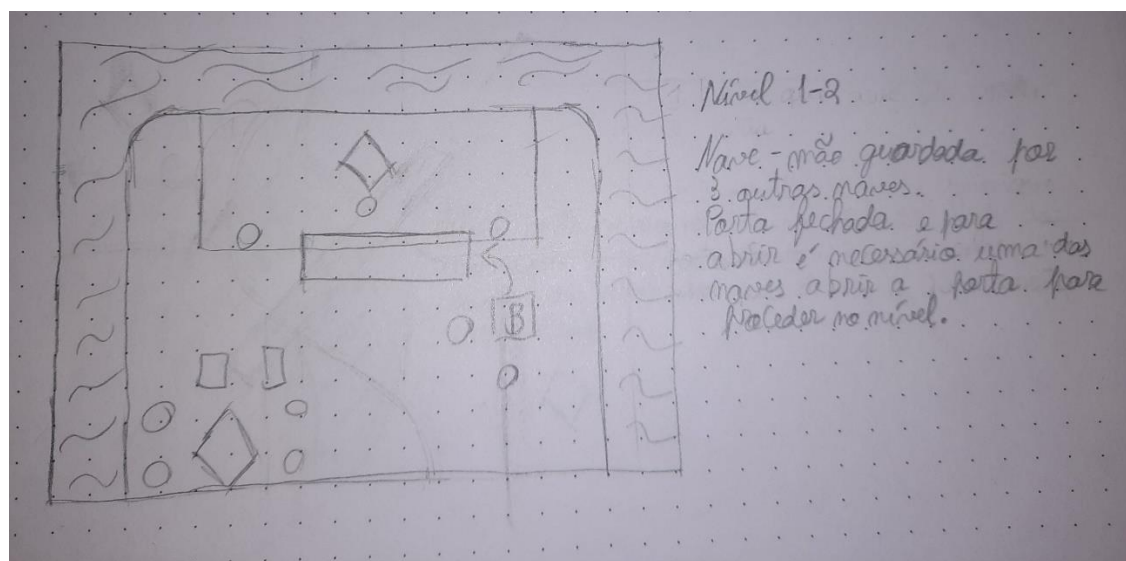 Nível 1-2
Nave-mãe guardada por
3 outras naves.
Porta fechada e para
abrir é necessário uma das
naves abrir a porta para
proceder no nível.
B